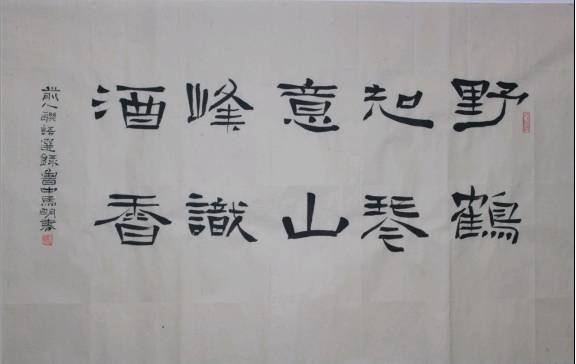 野鶴
知琴
意山
峰識
酒香
前人聯語選錄魯中馬明書